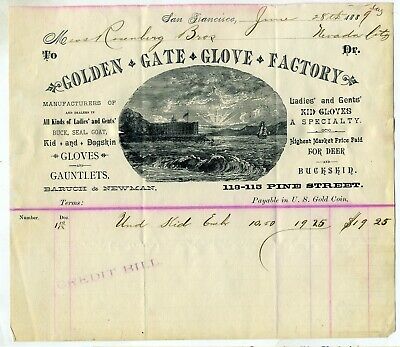 San Francisco, June 28th 1889
Mess Rosenberg Bros Nevada City
To Dr.
GOLDEN GATE GLOVE FACTORY
MANUFACTURERS OF
AND DEALERS IN
All Kinds of Ladies' and Gents'
BUCK, SEAL, GOAT,
Kid and Dogskin
GLOVES
AND
GAUNTLETS.
BARUCH & NEWMAN,
Ladies' and Gents'
KID GLOVES
A SPECIALTY.
Highest Market Price Paid
FOR DEER
AND
BUCKSKIN.
113-115 PINE STREET.
Terms: Payable in U. S. Gold Coin.
Number. Doz.
Und Kid 19 25 $19 25
CREDIT BILL.